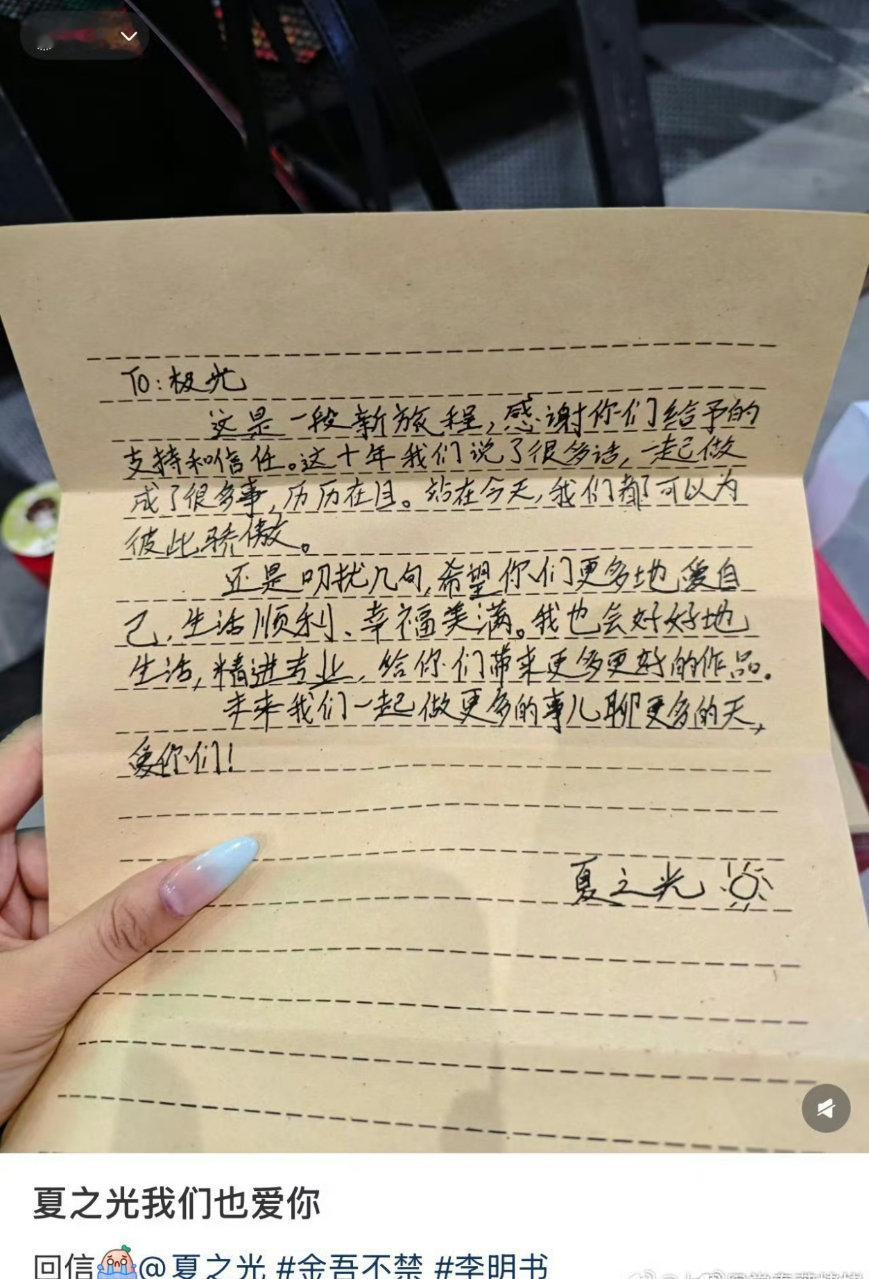 To:极光
这是一段新旅程,感谢你们给予的
支持和信任。这十年我们说了很多话,一起做
成了很多事,历历在目。站在今天,我们都可以为
彼此骄傲。
还是叨扰几句,希望你们更多地爱自
己,生活顺利、幸福美满。我也会好好地
生活,精进专业,给你们带来更多更好的作品.
未来我们一起做更多的事儿聊更多的天,
爱你们!
夏之光
夏之光我们也爱你
回信@夏之光 #金吾不禁 #李明书